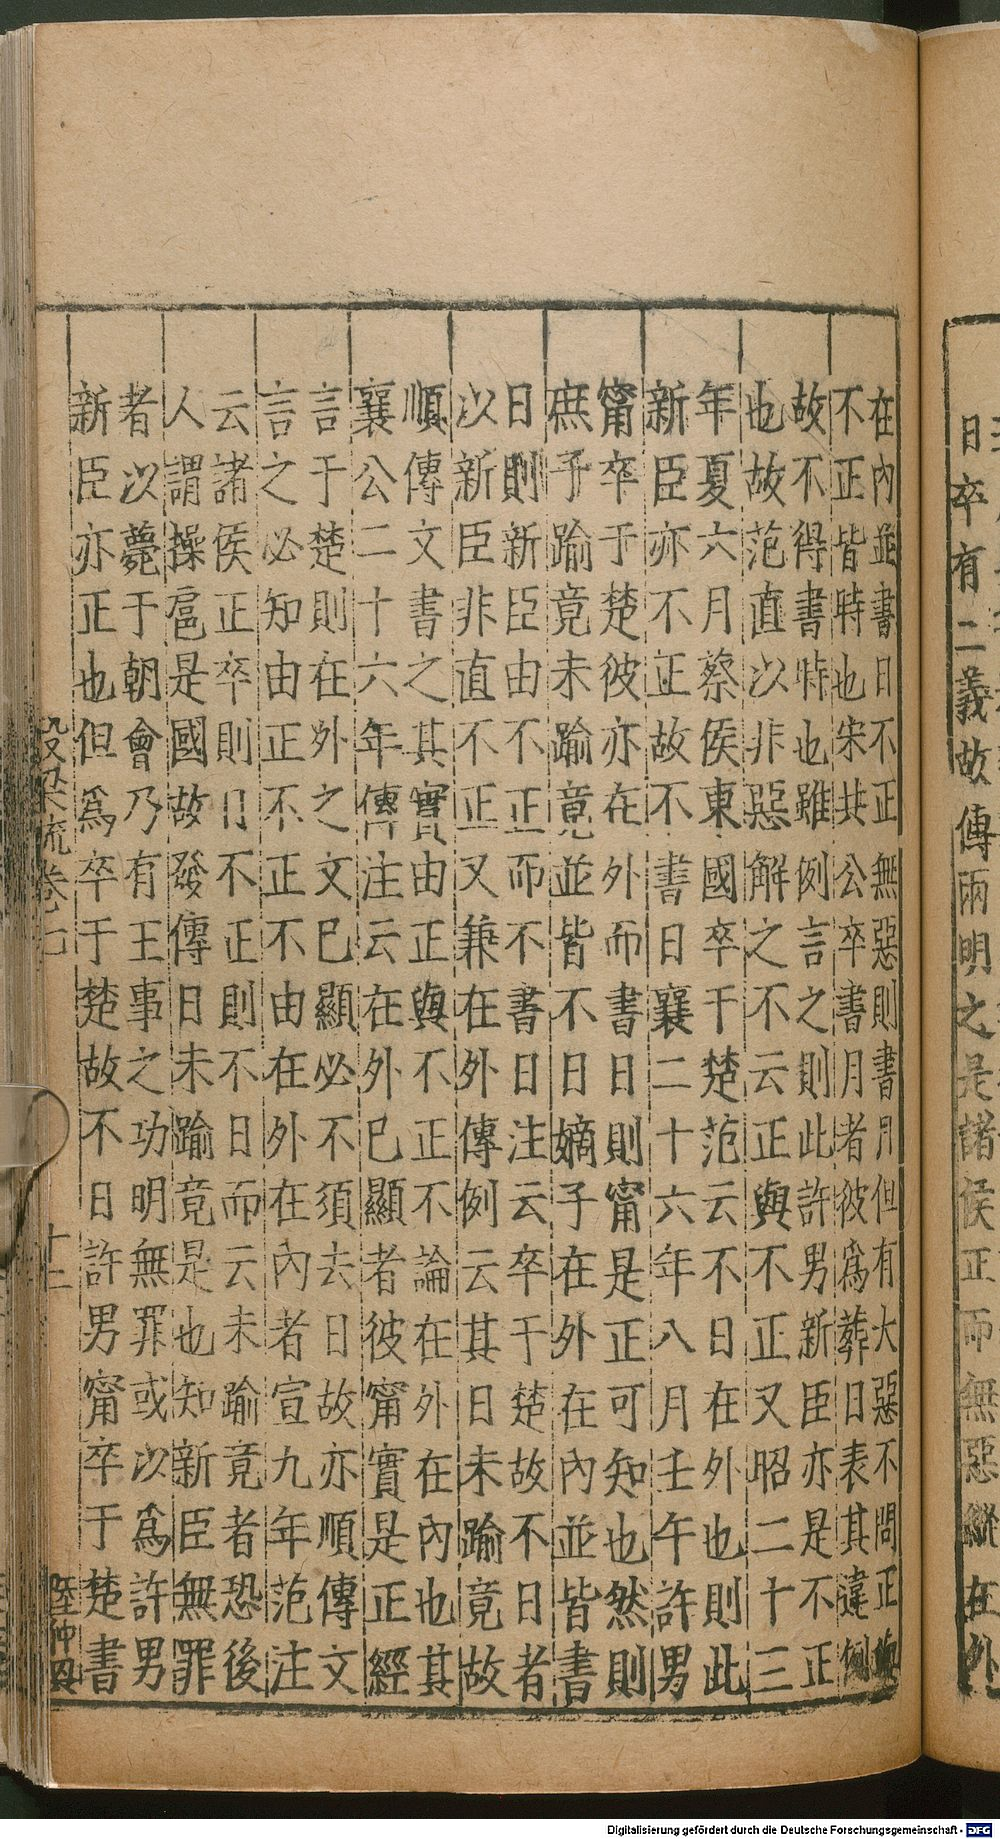 日卒有二義故傳兩明之是諸侯正而無惡縱在外
在內並書日不正無惡則書月但有大惡不問正與
不正皆時也宋共公卒書月者彼爲葬日表其違例
故不得書時也雖例言之則此許男新臣亦是不正
也故范直以非惡解之不云正與不正又昭二十三
年夏六月蔡侯東國卒于楚范云不日在外也則此
新臣亦不正故不書日襄二十六年八月壬午許男
甯卒于楚彼亦在外而書日則甯是正可知也然則
庶子踰竟未踰竟並皆不日嫡子在外在內並皆書
日則新臣由不正而不書日注云卒于楚故不日者
以新臣非直不正又兼在外傳例云其日未踰竟故
順傳文書之其實由正與不正不論在外在內也其
襄公二十六年傳注云在外已顯者彼甯實是正經
言于楚則在外之文已顯必不須去日故亦順傳文
言之必知由正不正不由在外在內者宣九年范注
云諸侯正卒則日不正則不日而云未踰竟者恐後
人謂操扈是國故發傳曰未踰竟是也知新臣無罪
者以薨于朝會乃有王事之功明無罪或以爲許男
新臣亦正也但爲卒于楚故不日許男甯卒于楚書
梁疏卷 十二 陸仲
Digitalisierung gefördert durch die Deutsche Forschungsgemeinschaft - DFG